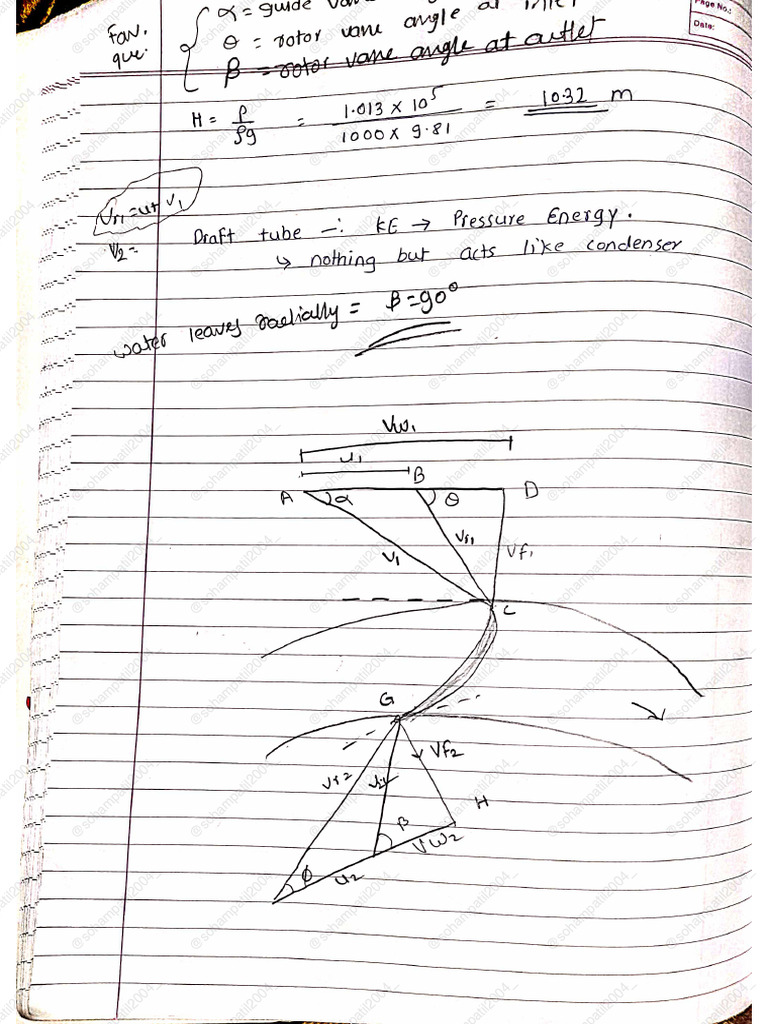 Page No.:
Date:
Fav.
que.
α = guide
θ = rotor vane angle at inlet
β = rotor vane angle at outlet
H = P/ρg = 1.013 × 10⁵ / 1000 × 9.81 = 10.32 m
V₂ =
Draft tube -: KE → Pressure Energy.
↳ nothing but acts like condenser
water leaves radially = β = 90°
Vw₁
u₁
A α B θ D
V₁ Vr₁ Vf₁
C
G
Vr₂ Vf₂
H
β
Vw₂
φ u₂
@sohampatil2004_